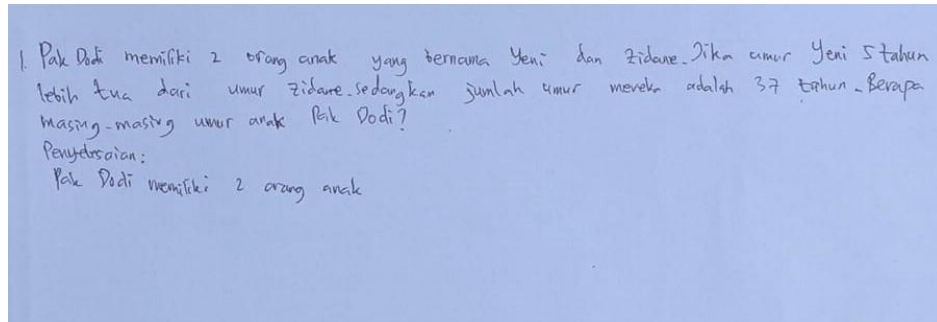 1. Pak Dodi memiliki 2 orang anak yang bernama Yeni dan Zidane. Jika umur Yeni 5 tahun
lebih tua dari umur Zidane. sedangkan jumlah umur mereka adalah 37 tahun. Berapa
masing-masing umur anak Pak Dodi?
Penyelesaian:
Pak Dodi memiliki 2 orang anak